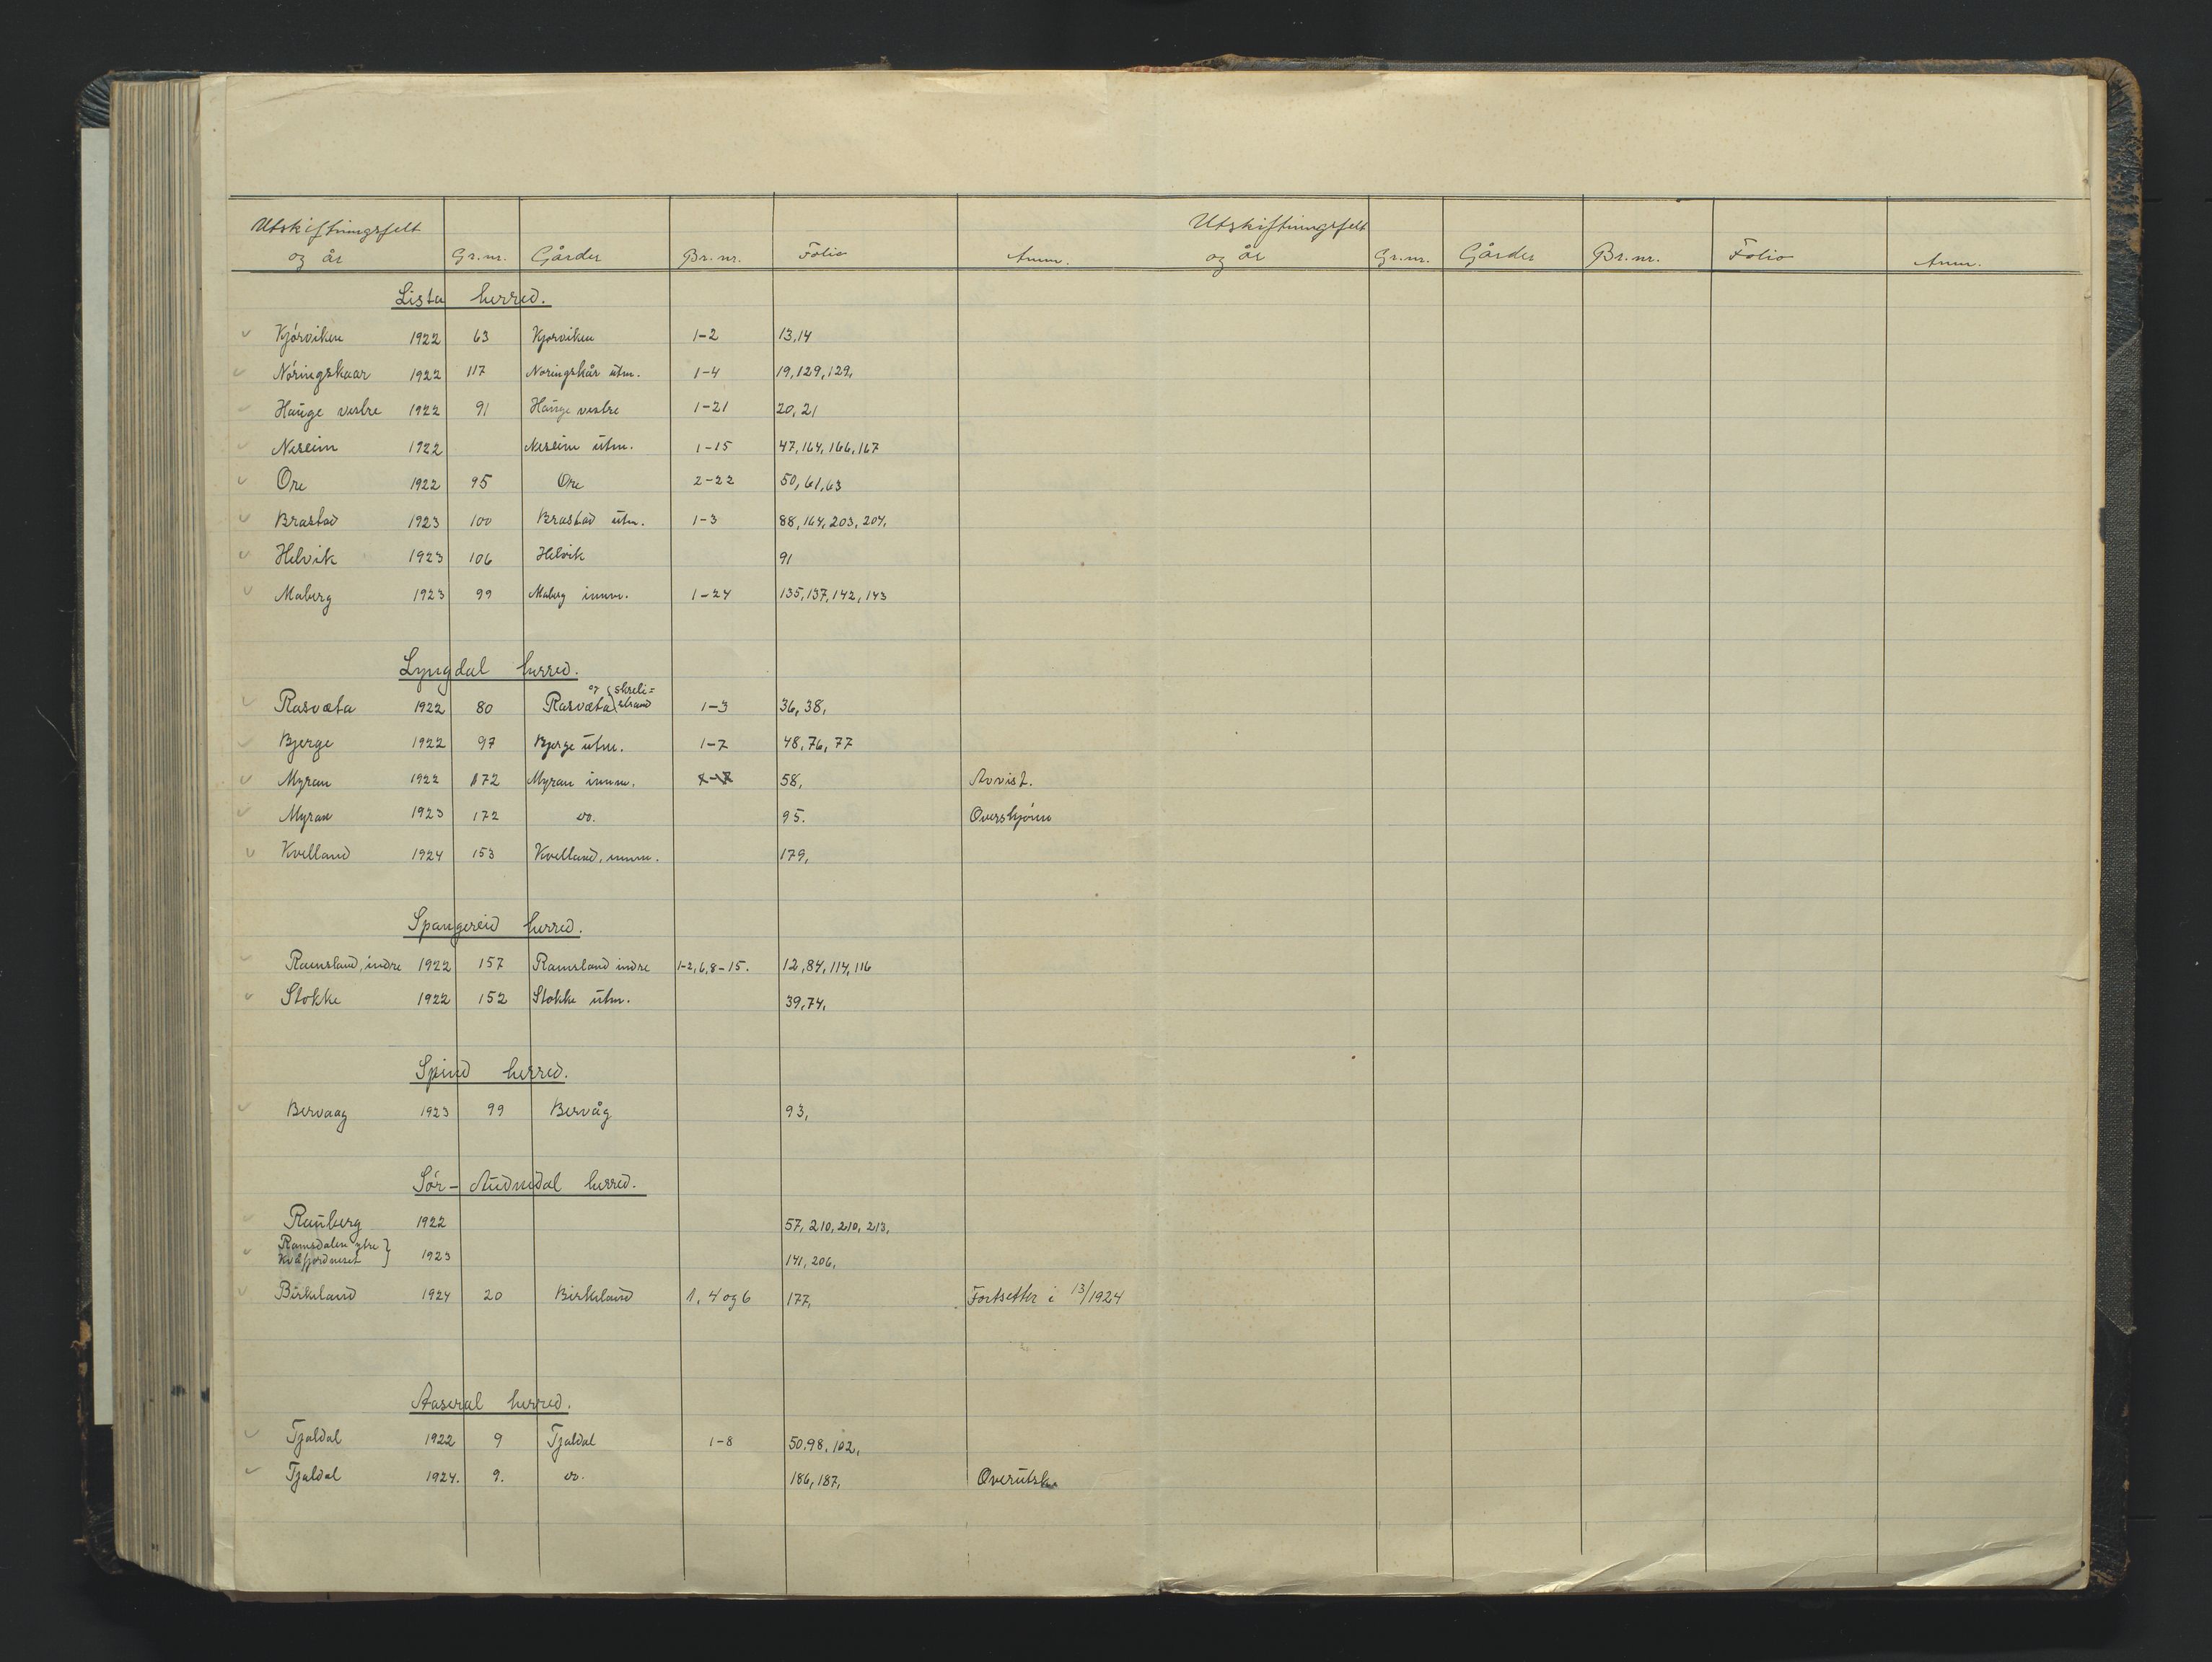 Utskiftningsfelt og år Gr.nr. Gårder Br.nr. Folio Anm. Utskiftningsfelt og år Gr.nr. Gårder Br.nr. Folio Anm.
Lista herred.
Kjórviken 1922 63 Kjorviken 1-2 13,14
Nóringskaar 1922 117 Noringskår utm. 1-4 19,129,129,
Hauge vestre 1922 91 Hauge vestre 1-21 20,21
Neseim 1922 Neseim utm. 1-15 47,164,166,167
Ore 1922 95 Ore 2-22 50,61,63
Brastad 1923 100 Brastad utm. 1-3 88,164,203,204,
Helvik 1923 106 Helvik 91
Maberg 1923 99 Maberg innm. 1-24 135,137,142,143
Lyngdal herred.
Rasvæta 1922 80 Rasvæta og skreli=strand 1-3 36,38,
Bjerge 1922 97 Bjerge utm. 1-7 48,76,77
Myran 1922 172 Myran innm. 58, Avvist.
Myran 1923 172 do. 95. Overskjónn
Kvelland 1924 153 Kvelland, innm. 179,
Spangereid herred.
Ramsland, indre 1922 157 Ramsland indre 1-2,6,8-15. 12,84,114,116
Stokke 1922 152 Stokke utm. 39,74,
Spind herred.
Bervaag 1923 99 Bervåg 93,
Sór-Audnedal herred.
Rauberg 1922 57,210,210,213,
Ramsdalen ytre
Kvåfjordneset } 1923 141,206,
Birkeland 1924 20 Birkeland 1, 4 og 6 177, Fortsetter i 13/1924
Aaseral herred.
Tjaldal 1922 9 Tjaldal 1-8 50,98,102,
Tjaldal 1924. 9. do. 186,187, Overutsk.